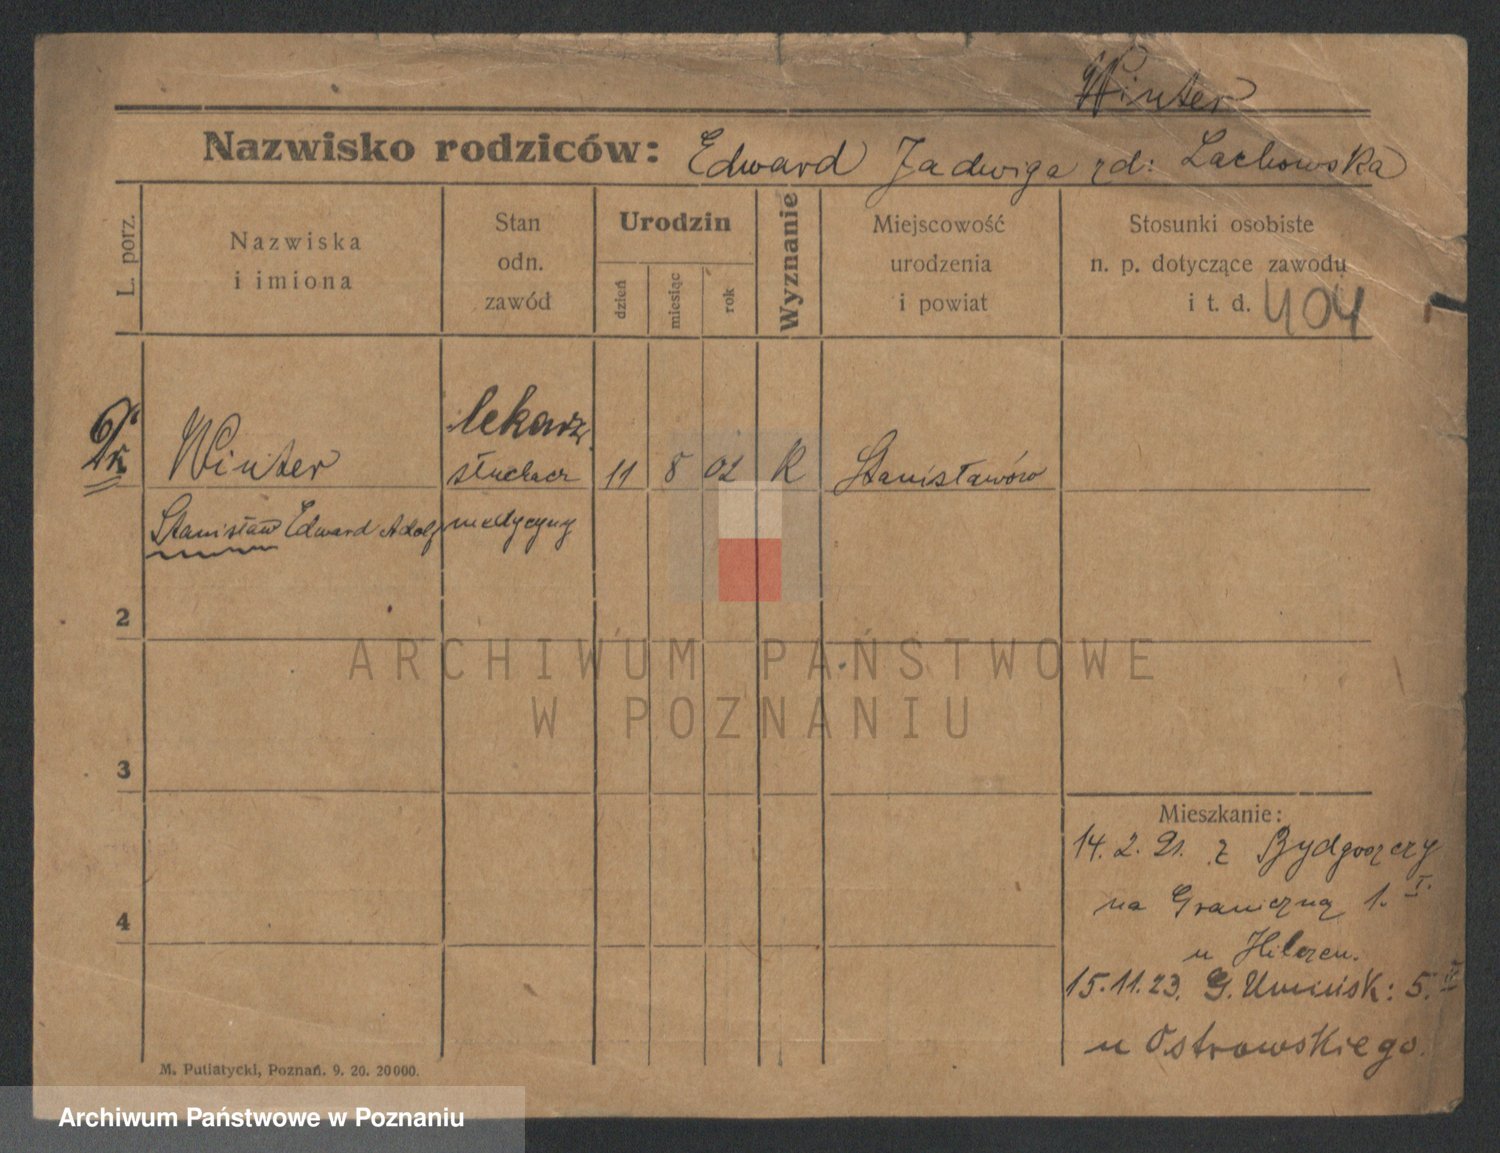 Winter
Nazwisko rodziców: Edward Jadwiga rd: Lachowska
L. porz.
Nazwiska
i imiona
Stan
odn.
zawód
Urodzin
dzień
miesiąc
rok
Wyznanie
Miejscowość
urodzenia
i powiat
Stosunki osobiste
n. p. dotyczące zawodu
i t. d. 404
Dr. Winter lekarz
słuchacz 11 8 02 R Stanisławów
Stanisław Edward Adolf medycyny
2
3
4
Mieszkanie:
14. 2. 21. z Bydgoszczy
na Graniczną 1. I.
u Hilczen.
15.11.23. G. Umińsk: 5.
u Ostrowskiego.
M. Putiatycki, Poznań. 9. 20. 20000.
ARCHIWUM PAŃSTWOWE
W POZNANIU
Archiwum Państwowe w Poznaniu